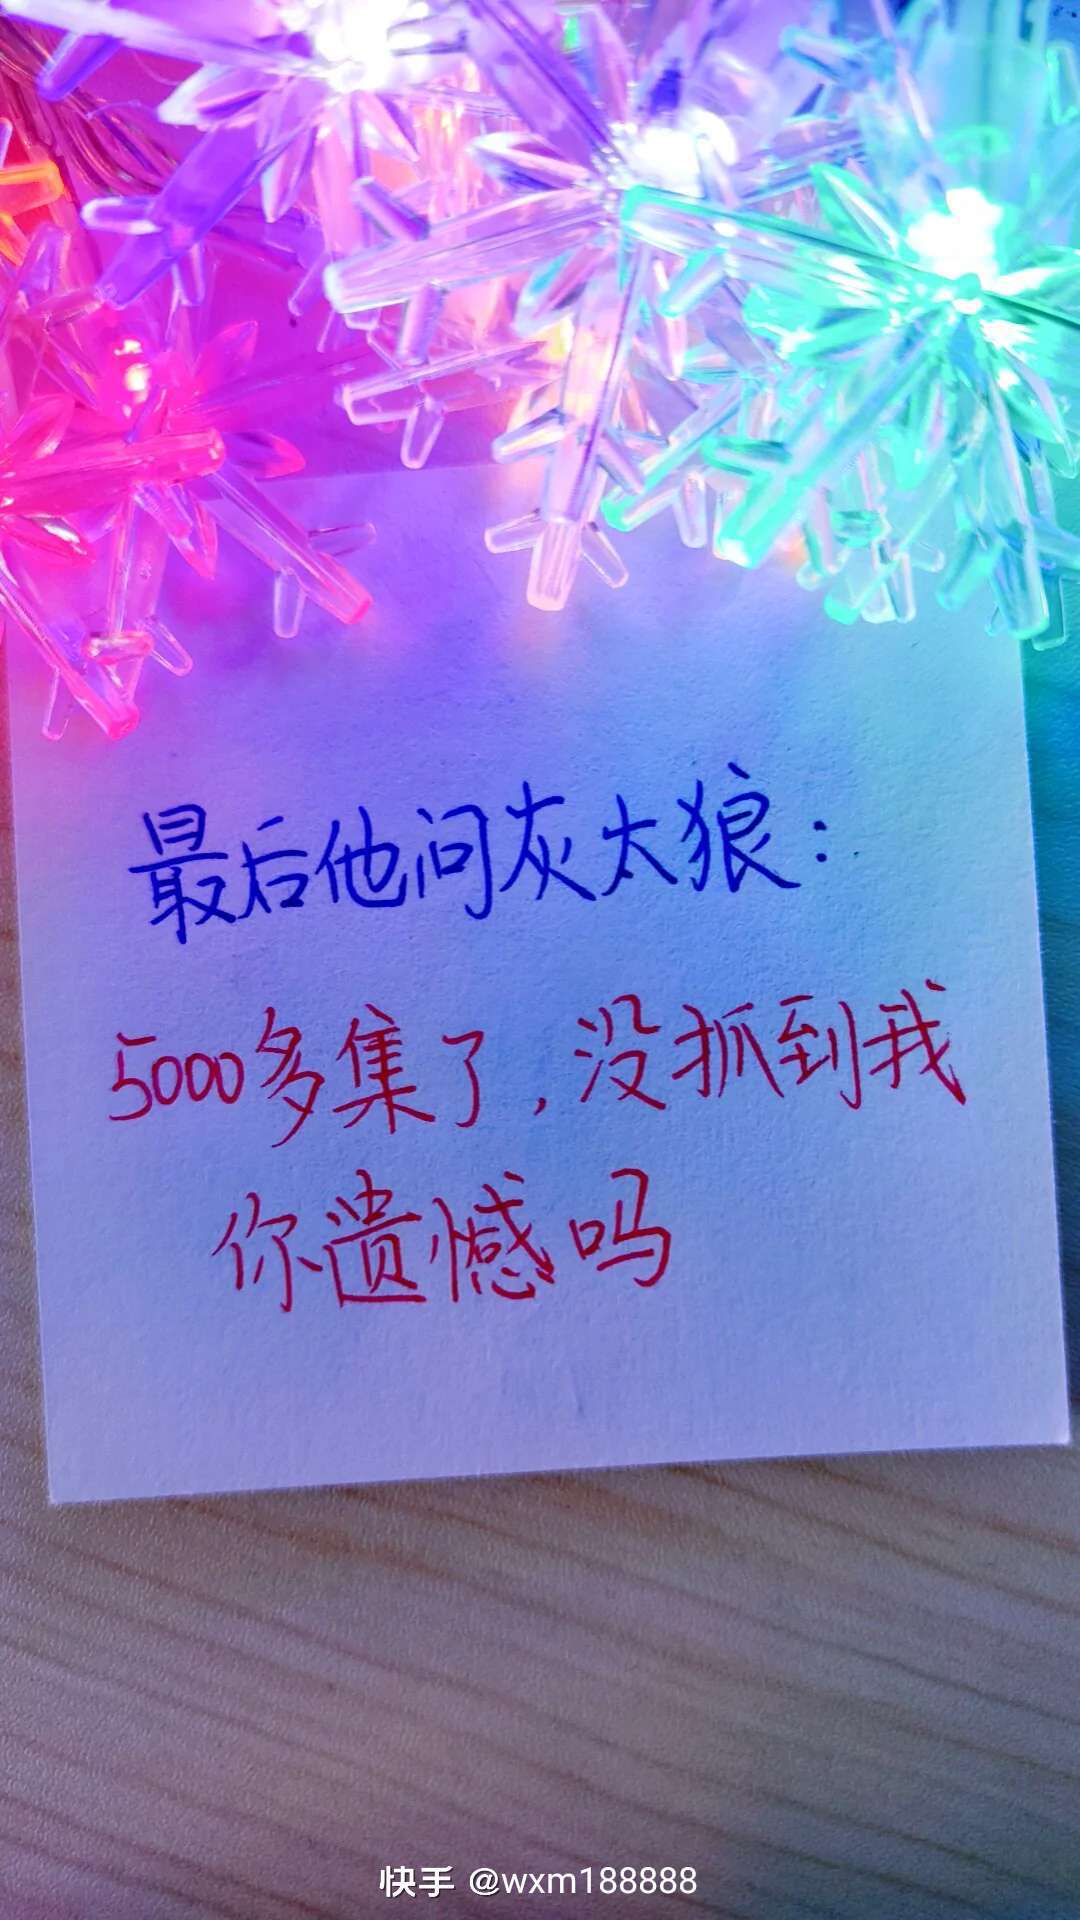 最后他问灰太狼：
5000多集了，没抓到我
你遗憾吗
快手 @wxm188888